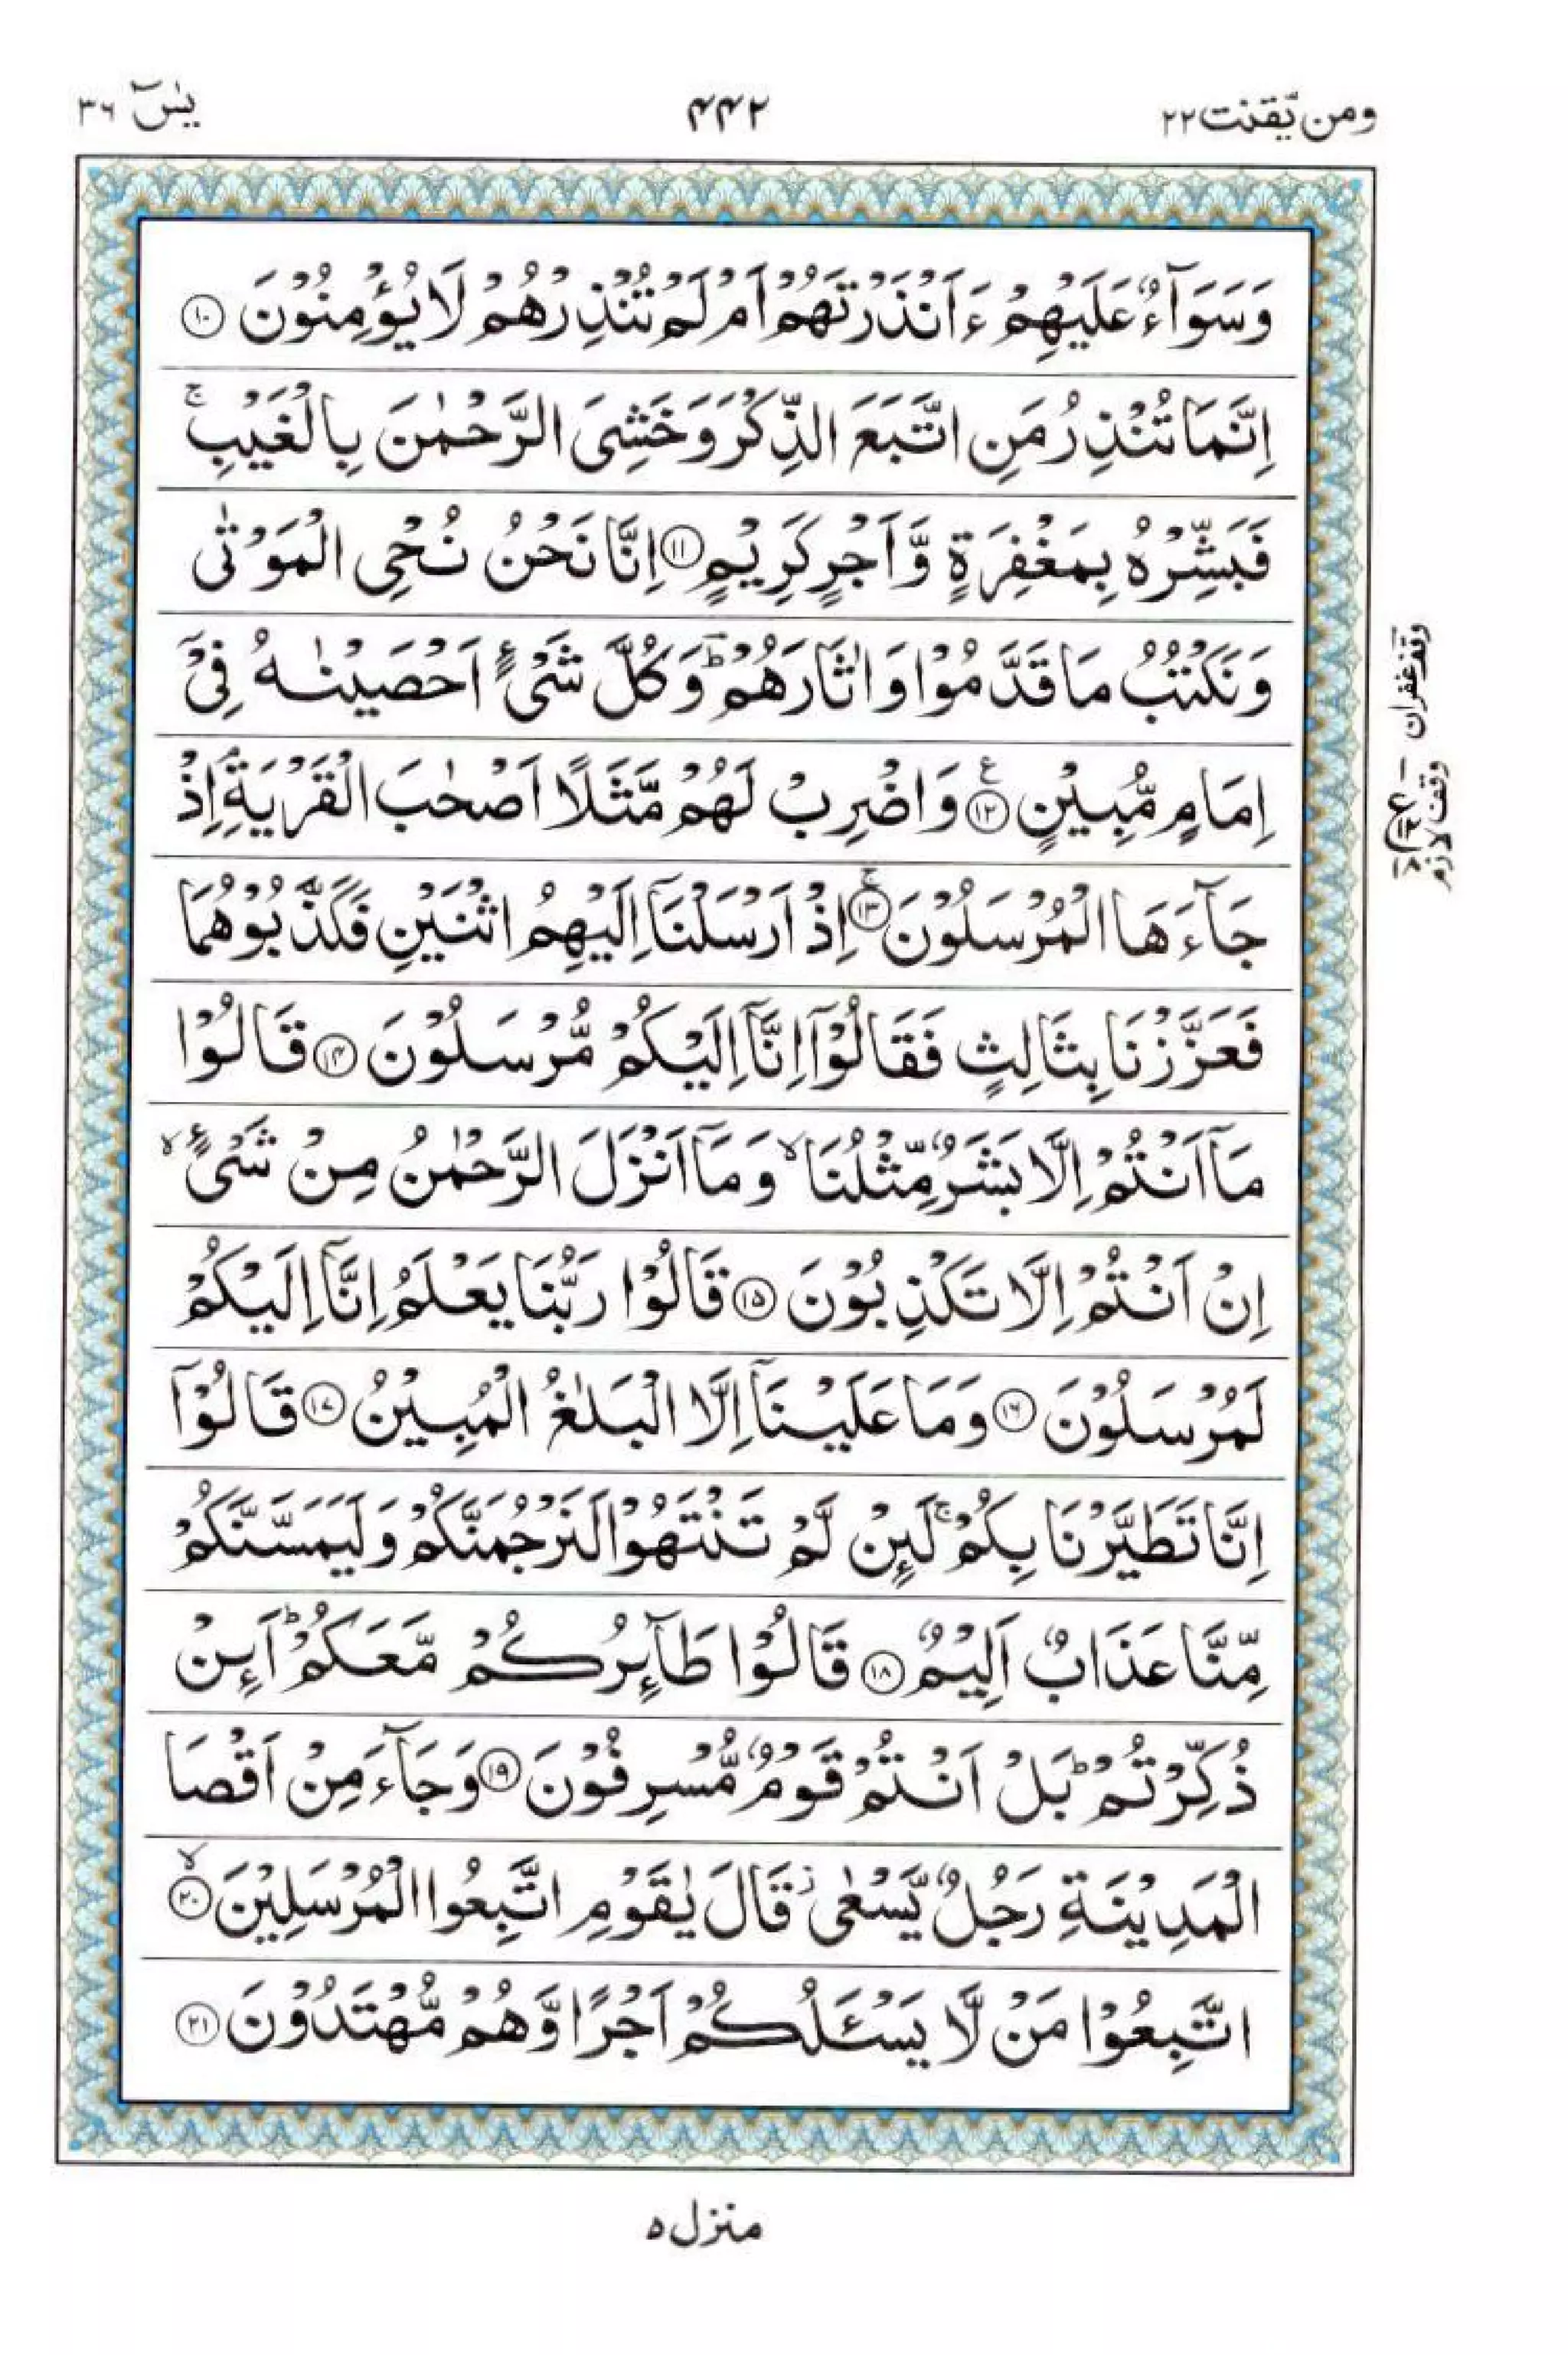 ومن یّقنت ۲۲ ۴۴۲ یٰسٓ ۳۶
وَسَوَآءٌ عَلَیْهِمْ ءَاَنْذَرْتَهُمْ اَمْ لَمْ تُنْذِرْهُمْ لَا یُؤْمِنُوْنَ ۝۱۰
اِنَّمَا تُنْذِرُ مَنِ اتَّبَعَ الذِّكْرَ وَخَشِیَ الرَّحْمٰنَ بِالْغَیْبِ ۚ
فَبَشِّرْهُ بِمَغْفِرَةٍ وَّاَجْرٍ كَرِیْمٍ ۝۱۱ اِنَّا نَحْنُ نُحْیِ الْمَوْتٰی
وَنَكْتُبُ مَا قَدَّمُوْا وَاٰثَارَهُمْ ؕ وَكُلَّ شَیْءٍ اَحْصَیْنٰهُ فِیْۤ
اِمَامٍ مُّبِیْنٍ ۝۱۲ ع وَاضْرِبْ لَهُمْ مَّثَلًا اَصْحٰبَ الْقَرْیَةِ ۘ اِذْ
جَآءَهَا الْمُرْسَلُوْنَ ۝۱۳ ۚ اِذْ اَرْسَلْنَاۤ اِلَیْهِمُ اثْنَیْنِ فَكَذَّبُوْهُمَا
فَعَزَّزْنَا بِثَالِثٍ فَقَالُوْۤا اِنَّاۤ اِلَیْكُمْ مُّرْسَلُوْنَ ۝۱۴ قَالُوْا
مَاۤ اَنْتُمْ اِلَّا بَشَرٌ مِّثْلُنَا ۙ وَمَاۤ اَنْزَلَ الرَّحْمٰنُ مِنْ شَیْءٍ ۙ
اِنْ اَنْتُمْ اِلَّا تَكْذِبُوْنَ ۝۱۵ قَالُوْا رَبُّنَا یَعْلَمُ اِنَّاۤ اِلَیْكُمْ
لَمُرْسَلُوْنَ ۝۱۶ وَمَا عَلَیْنَاۤ اِلَّا الْبَلٰغُ الْمُبِیْنُ ۝۱۷ قَالُوْۤا
اِنَّا تَطَیَّرْنَا بِكُمْ ۚ لَىِٕنْ لَّمْ تَنْتَهُوْا لَنَرْجُمَنَّكُمْ وَلَیَمَسَّنَّكُمْ
مِّنَّا عَذَابٌ اَلِیْمٌ ۝۱۸ قَالُوْا طَآىِٕرُكُمْ مَّعَكُمْ ؕ اَىِٕنْ
ذُكِّرْتُمْ ؕ بَلْ اَنْتُمْ قَوْمٌ مُّسْرِفُوْنَ ۝۱۹ وَجَآءَ مِنْ اَقْصَا
الْمَدِیْنَةِ رَجُلٌ یَّسْعٰی ؗ قَالَ یٰقَوْمِ اتَّبِعُوا الْمُرْسَلِیْنَ ۝۲۰ ۙ
اتَّبِعُوْا مَنْ لَّا یَسْـَٔلُكُمْ اَجْرًا وَّهُمْ مُّهْتَدُوْنَ ۝۲۱
وقف غفران
وقف لازم
منزل ۵